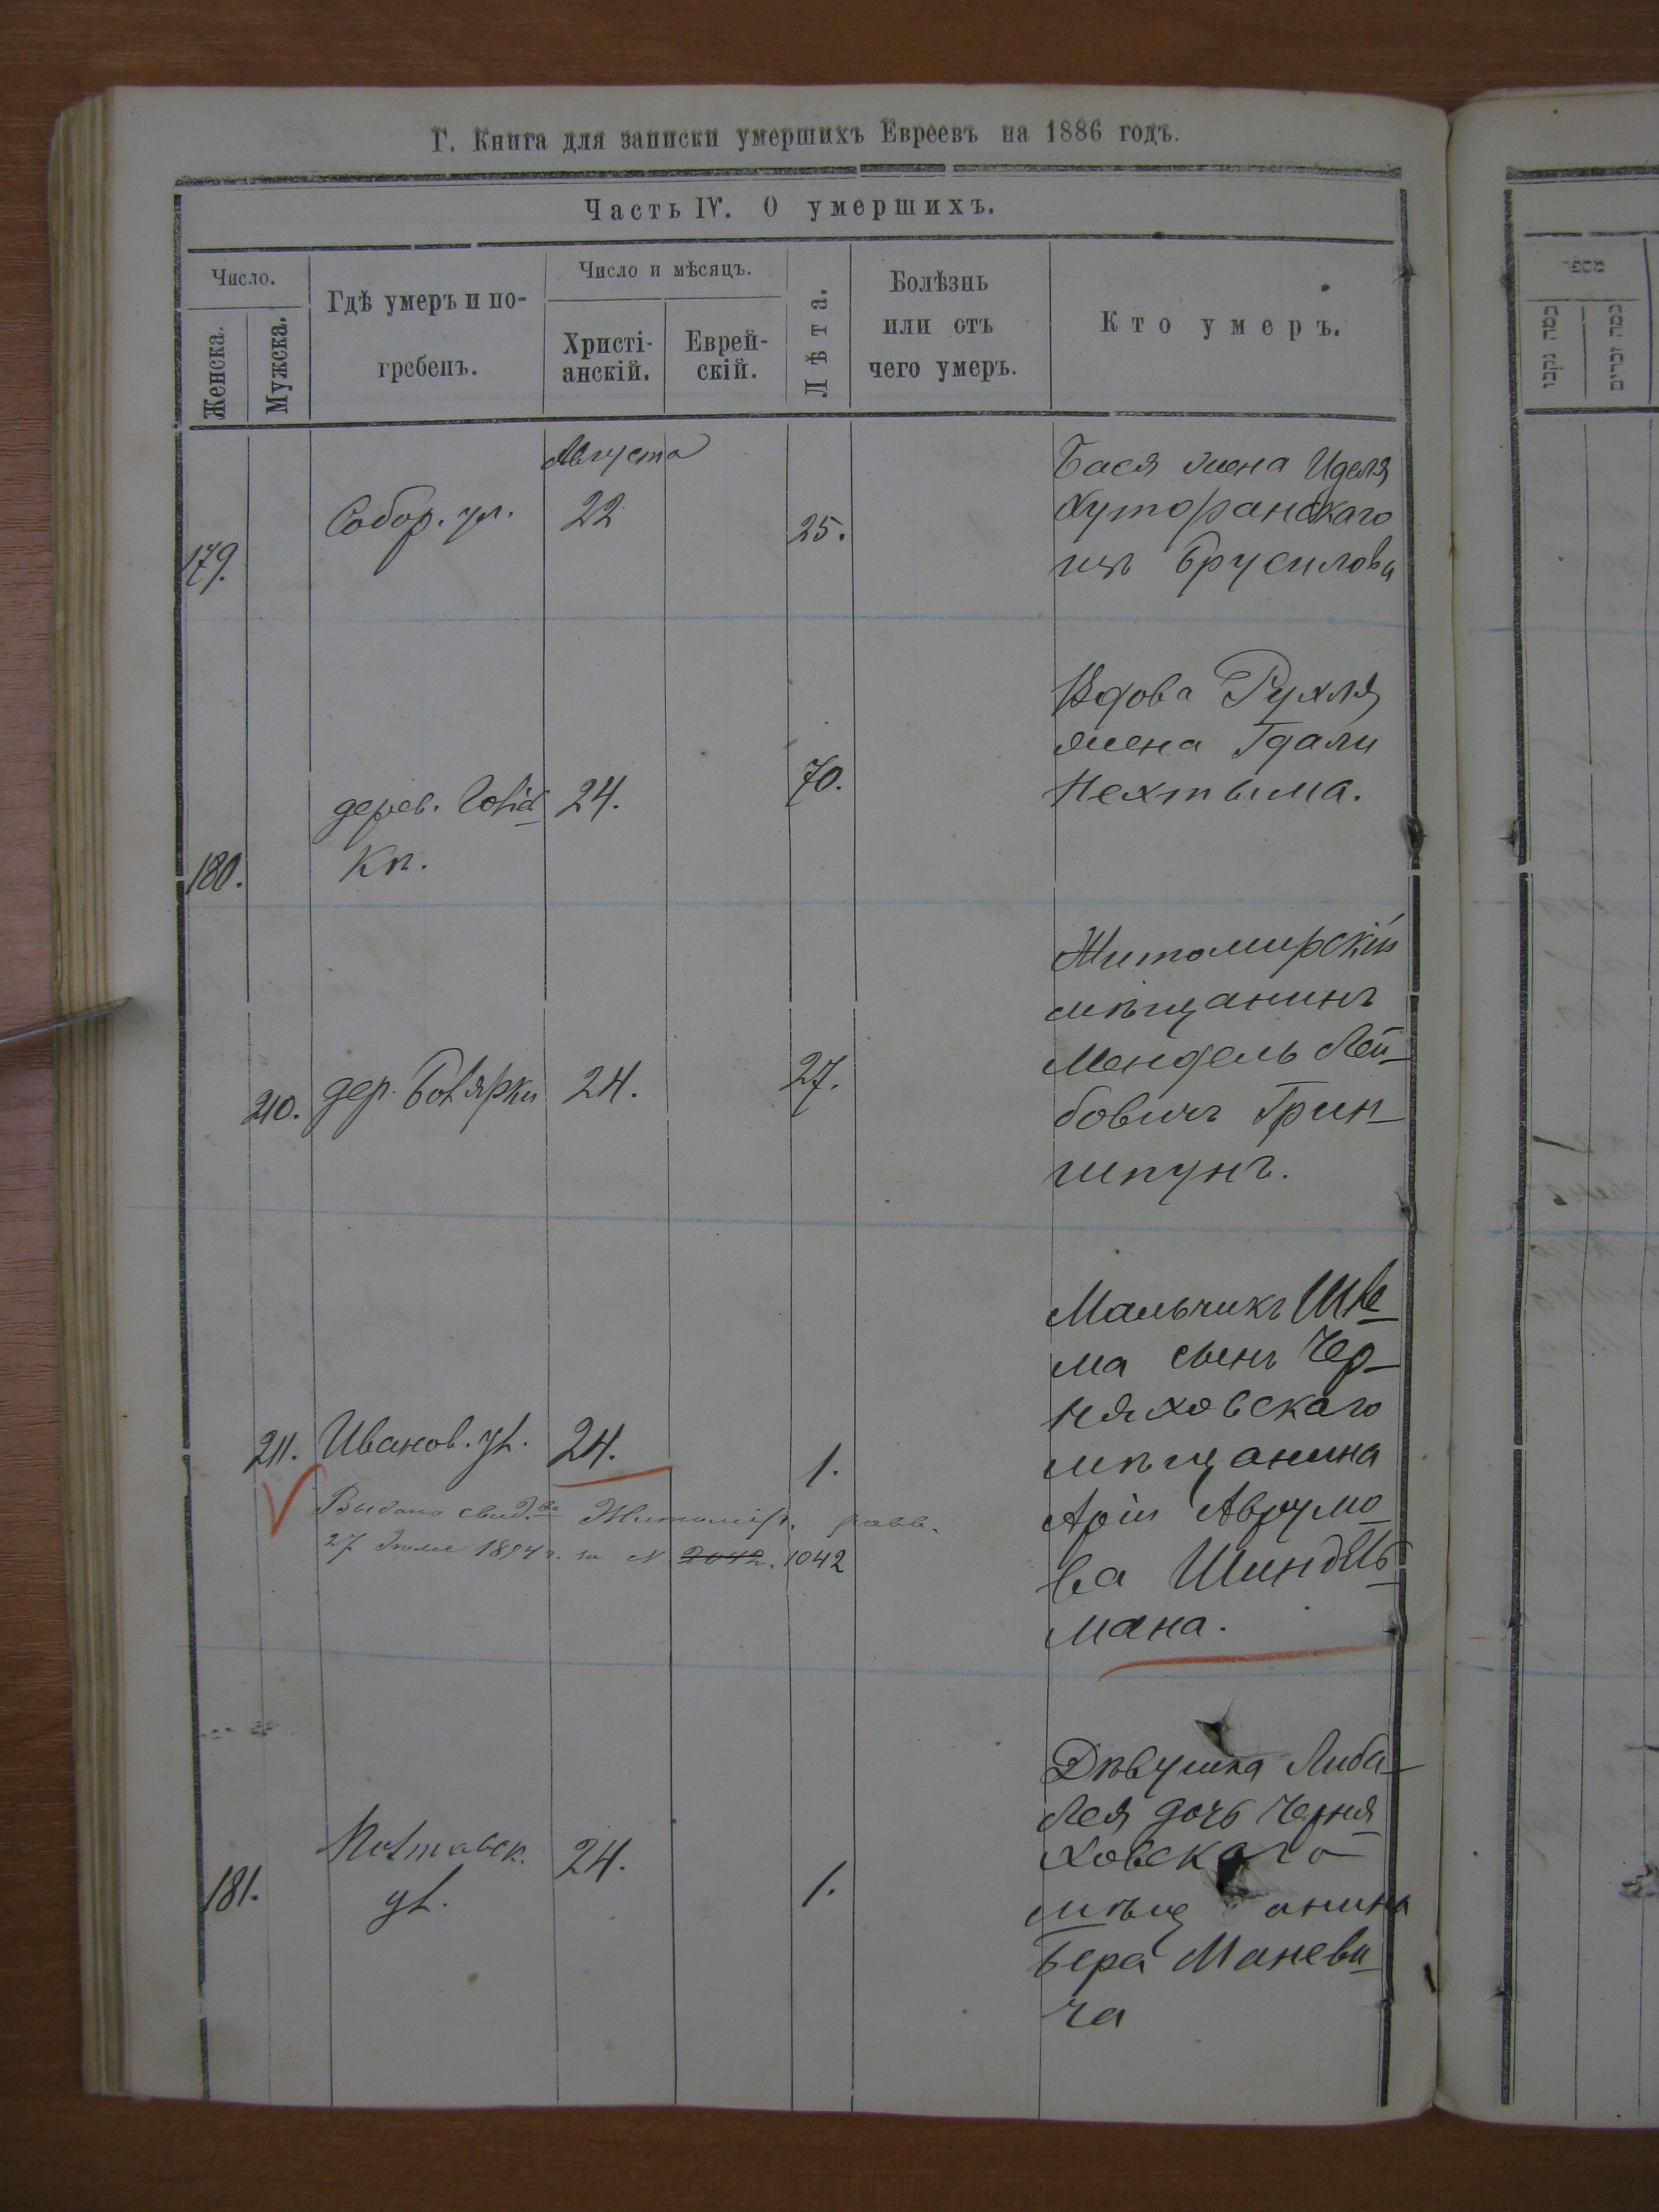 Г. Книга для записки умершихъ Евреевъ на 1886 годъ.
Часть IV. О умершихъ.
Число.
Женска.
Мужска.
Гдѣ умеръ и по-
гребенъ.
Число и мѣсяцъ.
Христі-
анскій.
Еврей-
скій.
Лѣта.
Болѣзнь
или отъ
чего умеръ.
Кто умеръ.
מספר
Августа
179.
Собор. ул.
22
25.
Бася жена Иделя
Хуторанскаго
изъ Брусилова
180.
дерев.
24.
70.
Вдова Рухля
жена Гдали
Нехтыма.
210.
дер. Боярки
24.
27.
Житомирскій
мѣщанинъ
Мендель Лей-
бовичъ Грин-
шпунъ.
211.
Иванов. ул.
24.
1.
Выдано свид.во Житомір. равв.
27 1894 г. за N 2042. 1042
Мальчикъ Шле-
ма сынъ Чер-
няховскаго
мѣщанина
Арія Аврумо-
ва Шиндель-
мана.
181.
Полтавск.
ул.
24.
1.
Дѣвушка Либа-
Лея дочь Черня-
ховскаго
мѣщанина
Бера Маневи-
ча